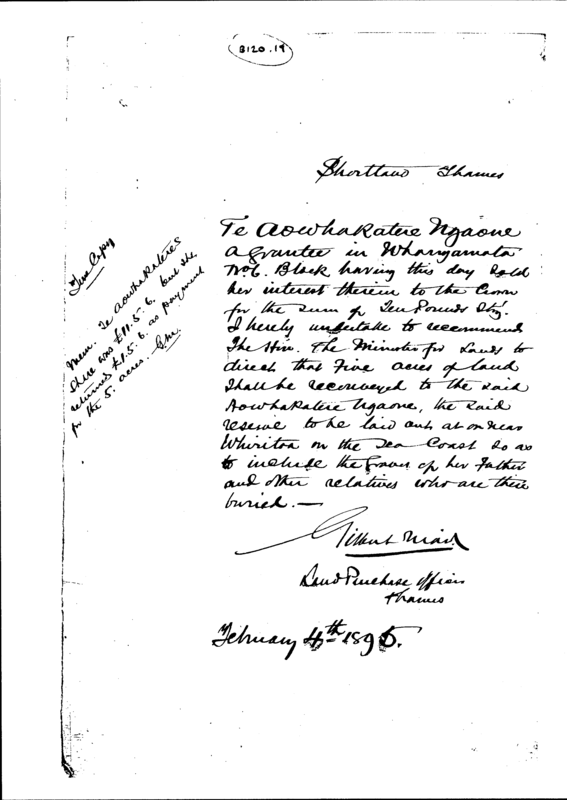 B120.19
Shortland Thames
Te Aowhakatere Ngaone
a grantee in Whangamata
No 6. Block having this day sold
her interest therein to the Crown
for the sum of Ten Pounds Stg.
I hereby undertake to recommend
The Hon. The Minister for Lands to
direct that Five acres of land
shall be reconveyed to the said
Aowhakatere Ngaone, the said
reserve to be laid out at or near
Whiritoa on the Sea Coast so as
to include the Graves of her Father
and other relatives who are there
buried.—
Gilbert Mair
Land Purchase Officer
Thames
February 4th 1895.
True Copy
Mem. Te Aowhakatere's
share was £11.5.6, but she
returned £1.5.6 as payment
for the 5. acres. GM